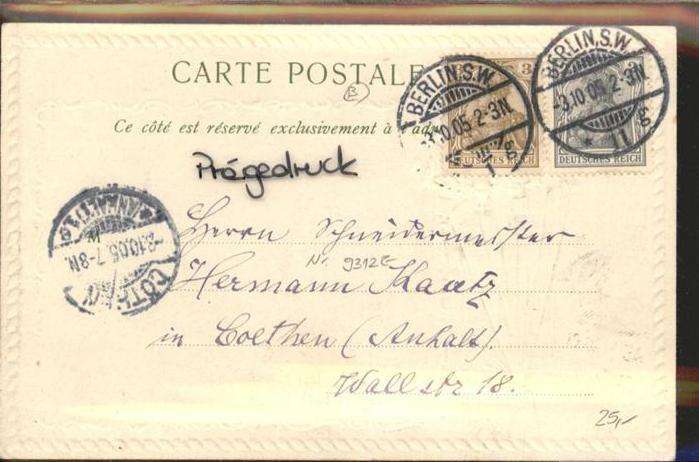 CARTE POSTALE
Ce côté est réservé exclusivement à l'adr
Prägedruck
BERLIN, S.W.
3.10.05 2-3N.
DEUTSCHES REICH
3
BERLIN, S.W.
-3.10.05 2-3N.
* 11 g
DEUTSCHES REICH
(ANHALT)
3.10.05.7-8N.
CÖTHEN
Herrn Schneidermeister
Nr. 9312E
Hermann Kaatz
in Coethen (Anhalt).
Wallstr 18.
25,-